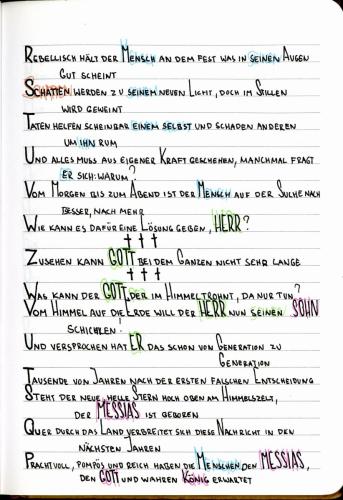 Rebellisch hält der Mensch an dem fest was in seinen Augen
gut scheint
Schatten werden zu seinem neuen Licht, doch im Stillen
wird geweint
Taten helfen scheinbar einem selbst und schaden anderen
um ihn rum
Und alles muss aus eigener Kraft geschehen, manchmal fragt
er sich: warum?
Vom Morgen bis zum Abend ist der Mensch auf der Suche nach
besser, nach mehr
Wie kann es dafür eine Lösung geben, HERR?
Zusehen kann GOTT bei dem Ganzen nicht sehr lange
Was kann der GOTT, der im Himmel thront, da nur tun?
Vom Himmel auf die Erde will der HERR nun seinen SOHN
schicken!
Und versprochen hat ER das schon von Generation zu
Generation
Tausende von Jahren nach der ersten falschen Entscheidung
Steht der neue, helle Stern hoch oben am Himmelszelt,
der MESSIAS ist geboren
Quer durch das Land verbreitet sich diese Nachricht in den
nächsten Jahren
Prachtvoll, pompös und reich haben die Menschen den MESSIAS,
den GOTT und wahren König erwartet